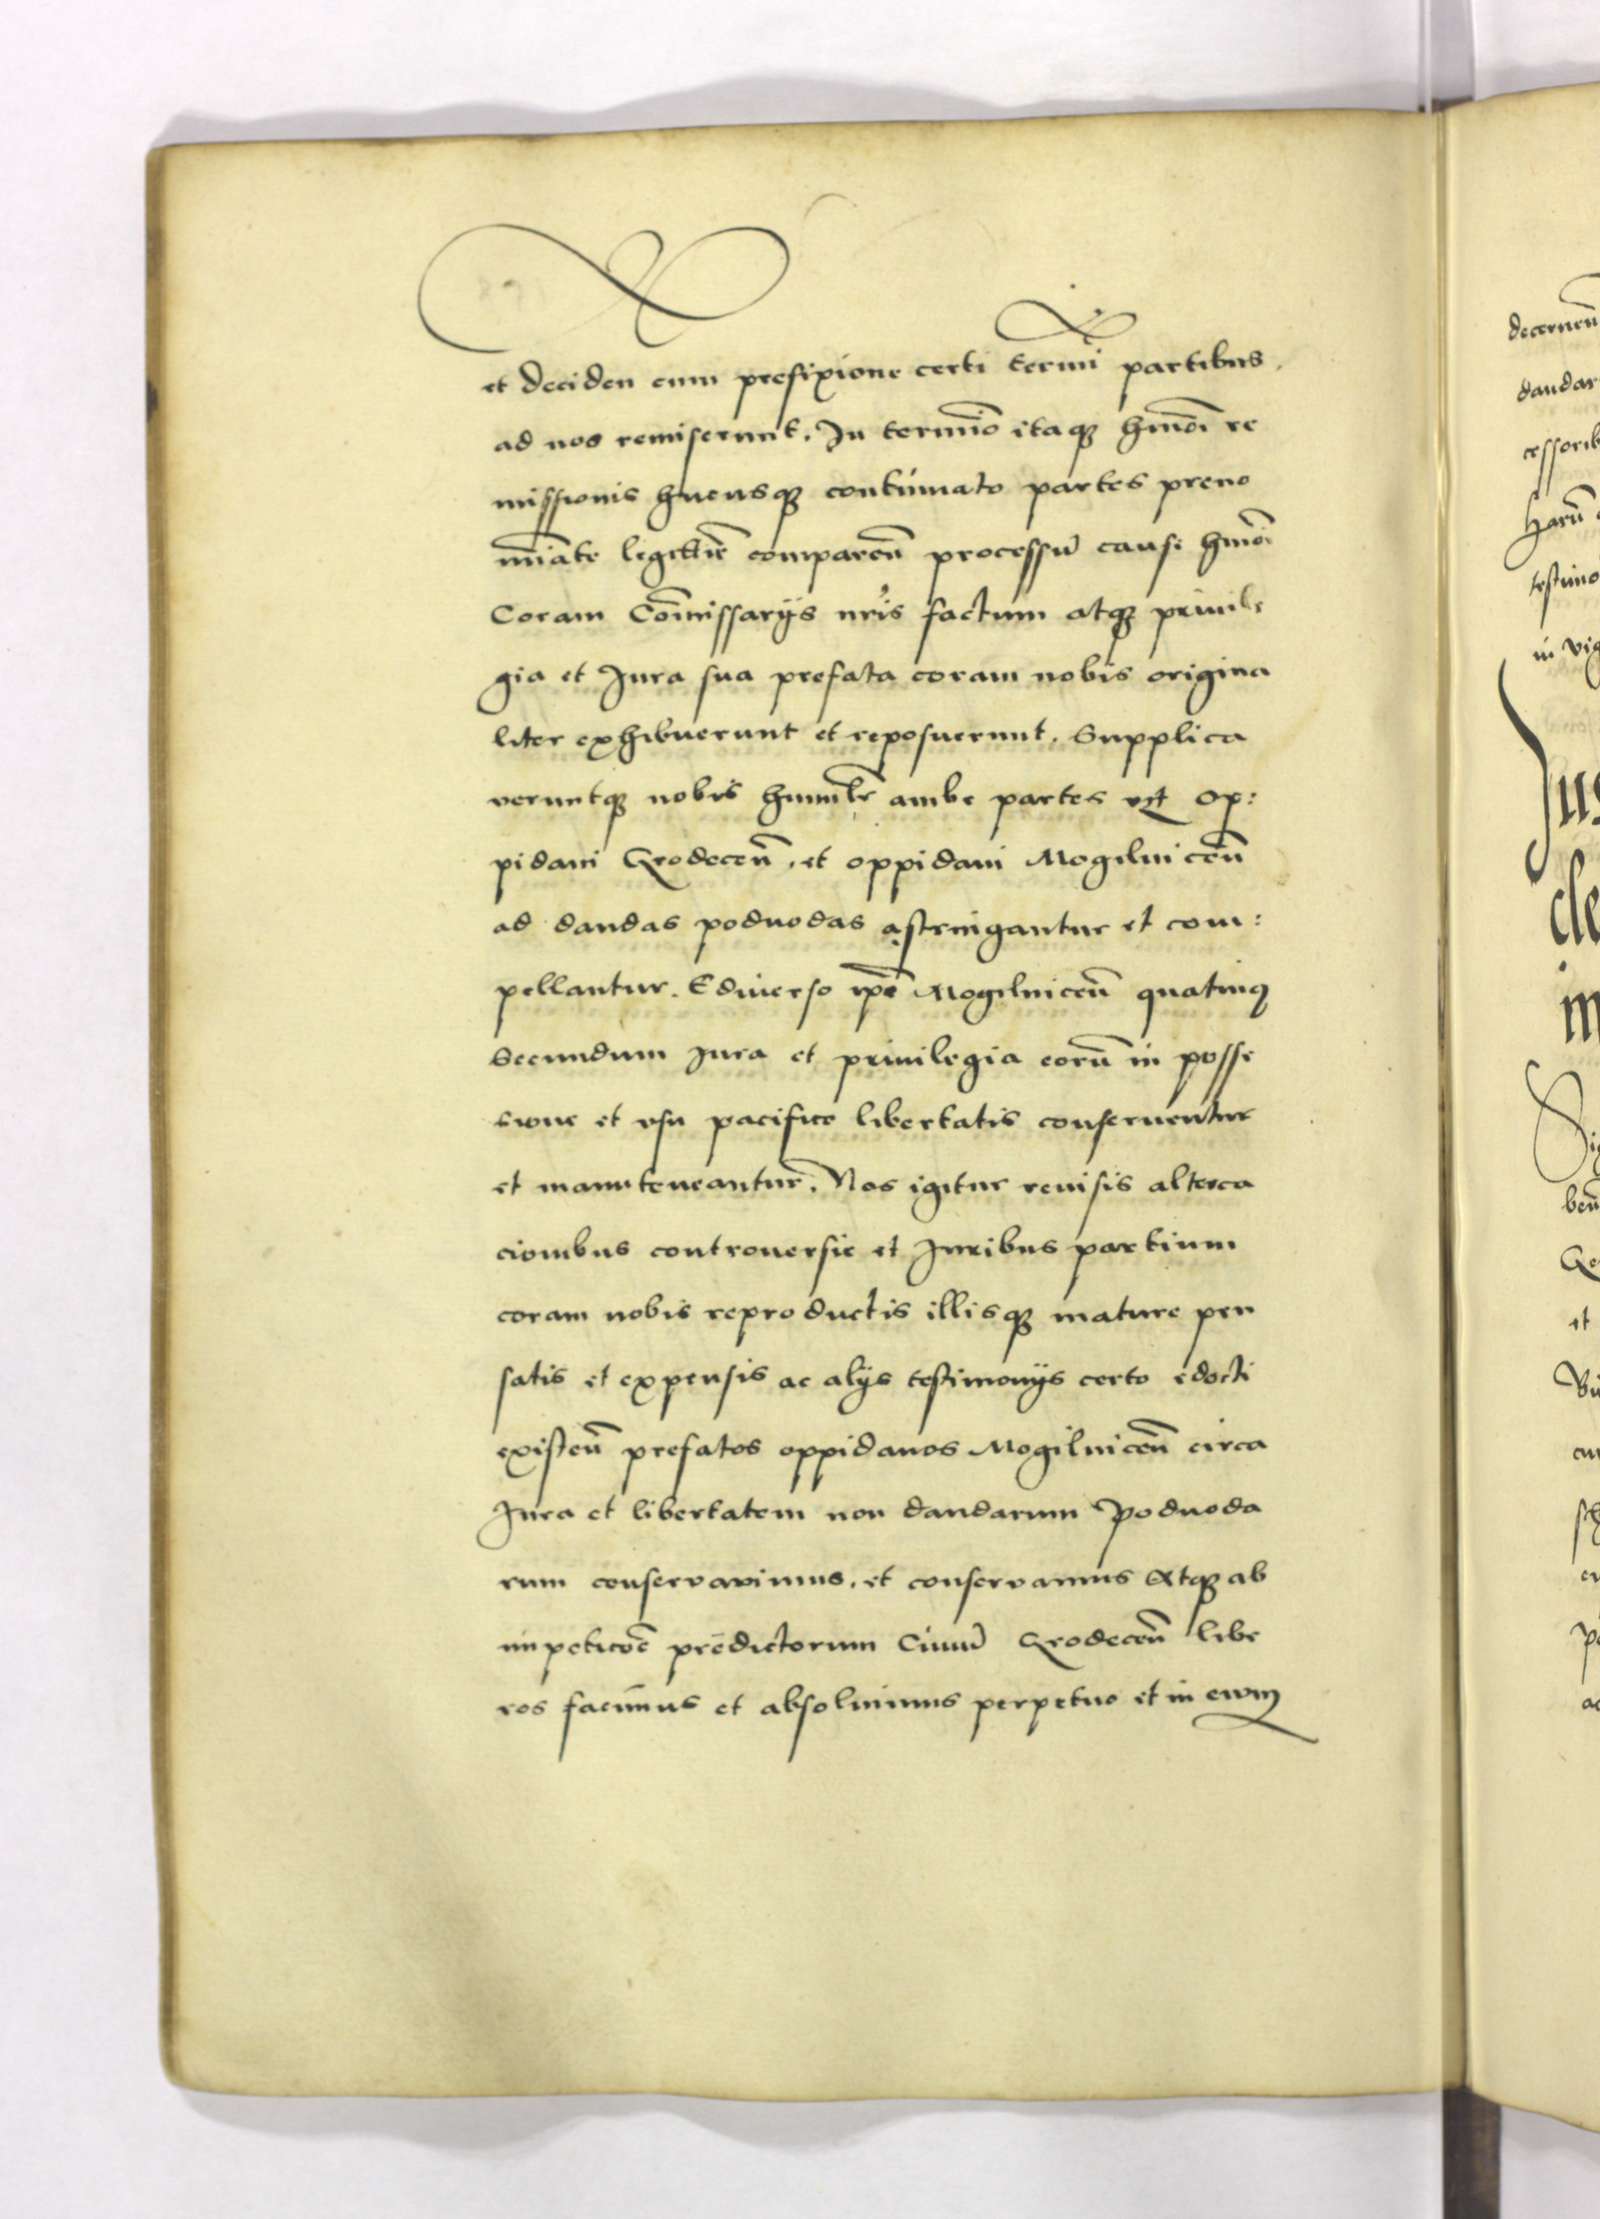 et deciden cum prefixione certi termi partibus.
ad nos remiserunt. In termio itaq hmoi re
missionis hucusq continuato partes preno
miate legittie comparen processu cause hmoi
Coram Comissarijs nris factum atq privile
gia et Jura sua prefata coram nobis origina
liter exhibuerunt et reposuerunt. Supplica
veruntq nobis humilr ambe partes vt Op:
pidani Grodecen. et oppidani Mogilnicen
ad dandas poduodas astringantur et com:
pellantur. E diuerso ipe Mogilnicen quatinq
Secundum Jura et priuilegia eoru in posse
sione et vsu pacifico libertatis conseruentur
et manuteneantur. Nos igitur reuisis alterca
cionibus controuersie et Juribus partium
coram nobis reproductis illisq mature pen
satis et expensis ac alijs testimonijs certo edocti
existen prefatos oppidanos Mogilnicen circa
Jura et libertatem non dandarum Poduoda
rum conservavimus. et conservamus Atq ab
impeticoe predictorum Ciuiu Grodecen libe
ros facimus et absoluimus perpetuo et in ewm
decernen
dandar
cessorib
Haru
testimo
in vig
Jus
cle
in
Sig
ben
et